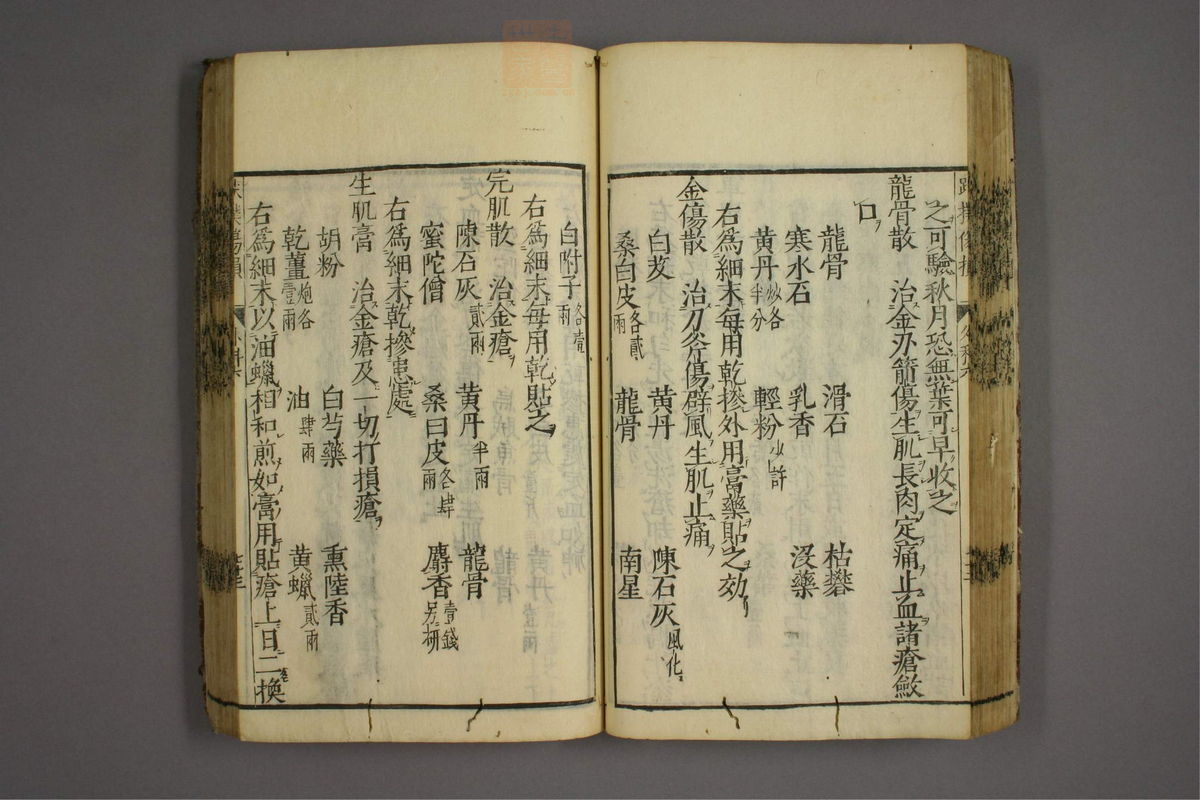 之可驗秋月恐無葉可早收之
龍骨散　治金刃箭傷生肌長肉定痛止血諸瘡斂
口
龍骨　滑石　枯礬
寒水石　乳香　沒藥
黄丹炒各半分　輕粉少許
右爲細末每用乾摻外用膏藥貼之効
金傷散　治刀斧傷辟風生肌止痛
白芨　黄丹　陳石灰風化
桑白皮各貳兩　龍骨　南星
白附子各壹兩
右爲細末每用乾貼之
完肌散　治金瘡
陳石灰貳兩　黄丹半兩　龍骨
蜜陀僧　桑白皮各肆兩　麝香壹錢另研
右爲細末乾摻患處
生肌膏　治金瘡及一切打損瘡
胡粉　白芍藥　熏陸香
乾薑炮各壹兩　油肆兩　黄蠟貳兩
右爲細末以油蠟相和煎如膏用貼瘡上日二換